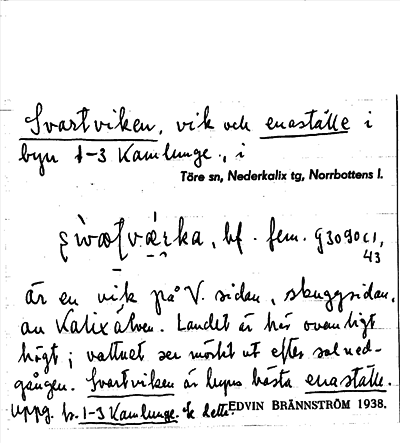 Svartviken, vik och enaställe i
byn 1-3 Kamlunge, i
Töre sn, Nederkalix tg, Norrbottens l.
bf. fem. G3090 c1,
43
är en vik på V. sidan, skuggsidan,
av Kalix älven. Landet är här ovanligt
högt; vattnet ser mörkt ut efter solned-
gången. Svartviken är byns bästa enaställe.
Uppg. fr. 1-3 Kamlunge. dette. EDVIN BRÄNNSTRÖM 1938.